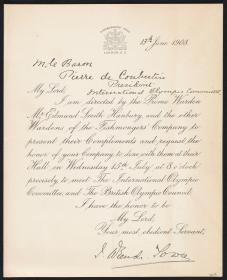 LONDON, E.C.
13th June 1908.
M. le Baron
Pierre de Coubertin
President
International Olympic Committee
My Lord,
I am directed by the Prime Warden
Mr. Edmund Smith Hanbury, and the other
Wardens of the Fishmongers Company to
present their Compliments and request the
honor of your Company to dine with them at their
Hall on Wednesday 15th July at 8 o'clock
precisely to meet The International Olympic
Committee, and The British Olympic Council.
I have the honor to be
My Lord,
Your most obedient Servant,